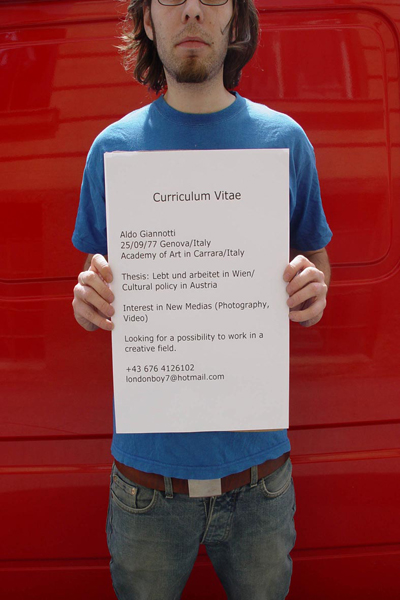 Curriculum Vitae
Aldo Giannotti
25/09/77 Genova/Italy
Academy of Art in Carrara/Italy
Thesis: Lebt und arbeitet in Wien/
Cultural policy in Austria
Interest in New Medias (Photography,
Video)
Looking for a possibility to work in a
creative field.
+43 676 4126102
londonboy7@hotmail.com